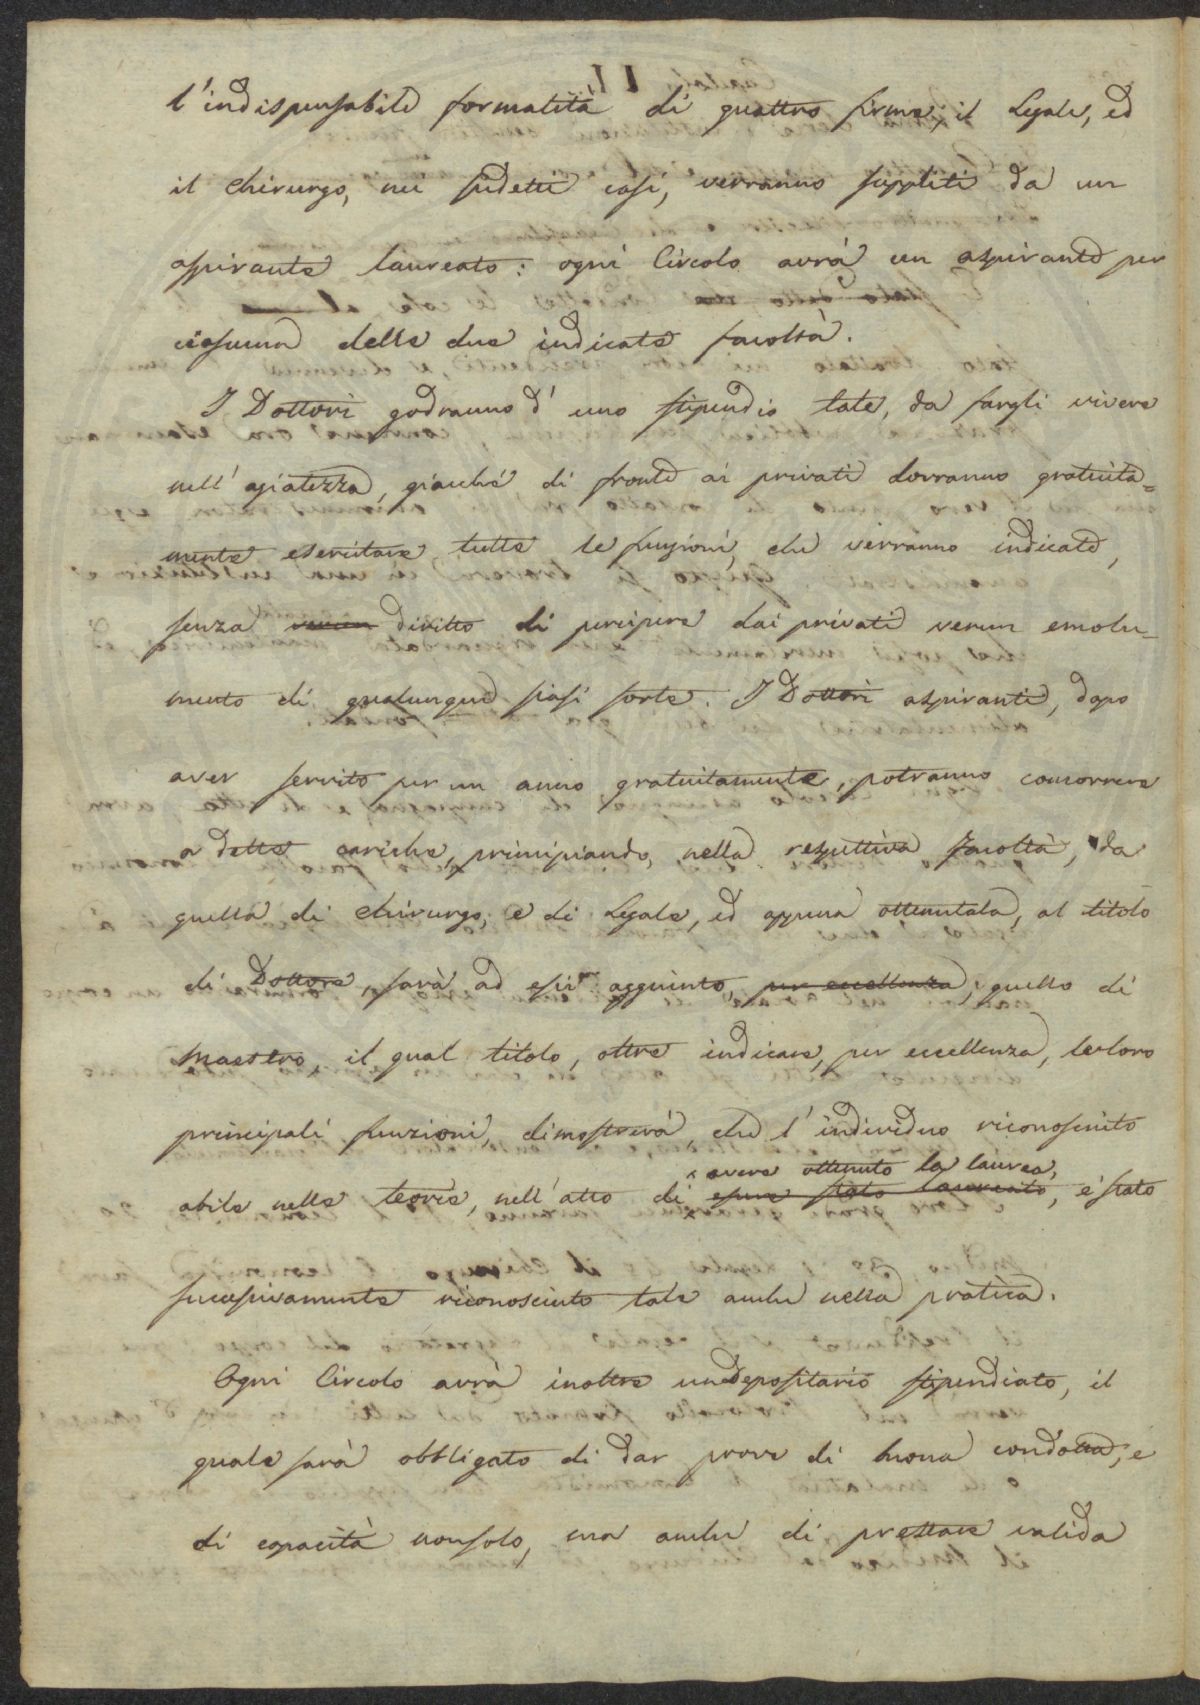 l'indispensabile formalità di quattro firme; il Legale, ed
il chirurgo, nei sudetti casi, verranno suppliti da un
aspirante laureato: ogni Circolo avrà un aspirante per
ciascuna delle due indicate facoltà.
I Dottori godranno d'uno stipendio tale, da fargli vivere
nell'agiatezza, giacché di fronte ai privati dovranno gratuita=
mente esercitare tutte le funzioni, che verranno indicate,
senza verun diritto di percipere dai privati verun emolu=
mento di qualunque siasi sorte. I Dottori aspiranti, dopo
aver servito per un anno gratuitamente, potranno concorrere
a dette cariche, principiando, nella respettiva facoltà, da
quella di chirurgo, e di Legale, ed appena ottenutala, al titolo
di Dottore, sarà ad essi aggiunto, per eccellenza, quello di
Maestro, il qual titolo, oltre indicare, per eccellenza, le loro
principali funzioni, dimostrerà, che l'individuo riconosciuto
avere ottenuto la laurea,
abile nelle teorie, nell'atto di essere stato laureato, è stato
successivamente riconosciuto tale anche nella pratica.
Ogni Circolo avrà inoltre un Depositario stipendiato, il
quale sarà obbligato di dar prove di buona condotta, e
di capacità non solo, ma anche di prestare valida